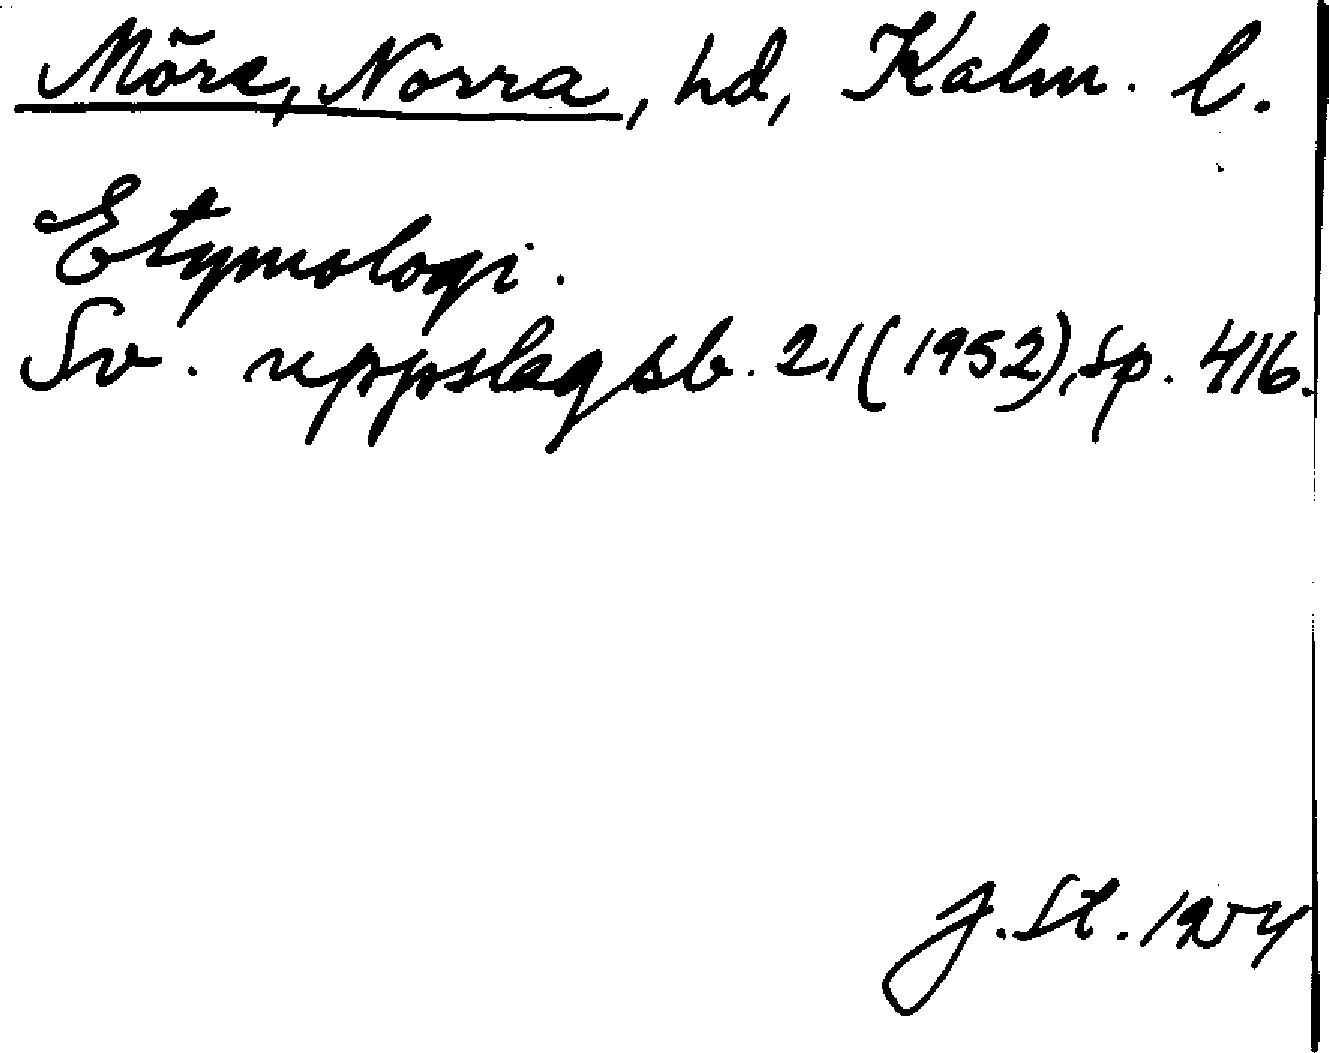 Möre, Norra, hd, Kalm. l.
Etymologi.
Sv. uppslagsb. 21 (1952), sp. 416.
J. St. 1954